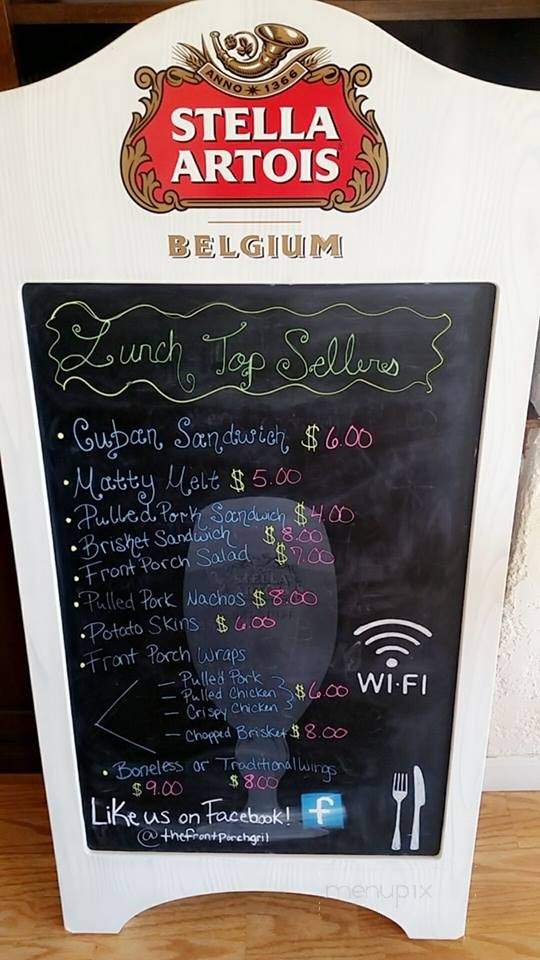 ANNO 1366
STELLA
ARTOIS
BELGIUM
Lunch Top Sellers
• Cuban Sandwich $6.00
• Matty Melt $5.00
• Pulled Pork Sandwich $4.00
• Brisket Sandwich $8.00
• Front Porch Salad $7.00
• Pulled Pork Nachos $8.00
• Potato Skins $6.00
• Front Porch Wraps
— Pulled Pork
— Pulled Chicken $6.00
— Crispy Chicken
— Chopped Brisket $8.00
WI-FI
• Boneless or Traditional Wings
$9.00 $8.00
Like us on Facebook! f
@thefrontporchgril
STELLA
menupix